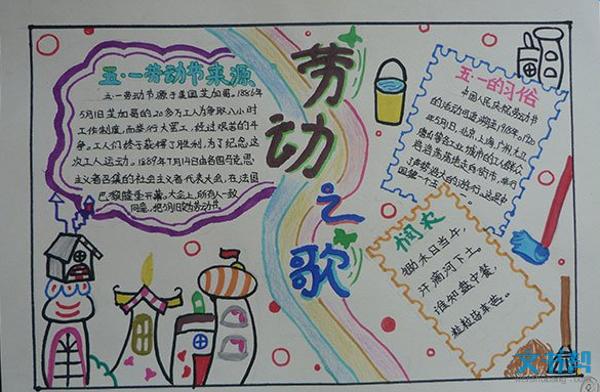 五·一劳动节来源
五·一劳动节源于美国芝加哥。1886年
5月1日芝加哥的20多万工人为争取八小时
工作制度,而举行大罢工,经过艰苦的斗
争。工人们终于获得了胜利,为了纪念这
次工人运动。1889年7月14日由各国马克思
主义者召集的社会主义者代表大会,在法国
巴黎隆重开幕。大会上,所有人一致
同意,把5月1日定为劳动节
劳
动
之
歌
五·一的习俗
中国人民庆祝劳动节
的活动可追溯至1918年。1920
年5月1日,北京、上海、广州、九江、
唐山等各工业城市的工人群众
浩浩荡荡地走向街市,举行
了声势浩大的游行,这是中
国第一个
悯农
锄禾日当午,
汗滴河下土。
谁知盘中餐,
粒粒皆辛苦。